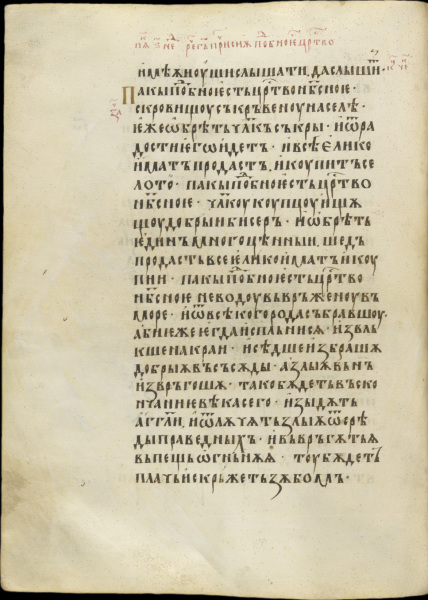 имѣѫ оуши слышати, да слыши·
Паки подобно ѥсть црⷭ҇тво нбⷭ҇ноѥ ·
скровищоу съкръвеноу на селѣ ·
ѥже ѡбрѣть чл҃къ съкры · и ѿ ра
дости ѥго идеть · и всѣ ѥлико
имать продасть, и коупить се
ло то · пакы пⷣобно ѥсть црⷭ҇тво
нбⷭ҇ноѥ · чл҃коу коупцоу ищѫ
щоу добрыи бисерь · и ѡбрѣть
ѥдинъ многоцѣнныи, шедъ
продасть все ѥлико иматъ и коу
пи и · пакы пⷣобно ѥсть црⷭ҇тво
нбⷭ҇ноѥ неводоу въвръженоу въ
море · и ѿ всѣкого рода събравшоу ·
абиѥ же ѥгда исплънисѧ · извлѣ
кше на краи · и сѣдше избрашѫ
добрыѫ въ съсѫды · а злыѫ вънъ
извръгошѫ · тако бѫдеть въ скон
чаниѥ вѣка сего · изыдѫть
агг҃ли, и ѿлѫчѧть злыѫ ѿ срѣ
ды праведныхъ · и въвръгѫтьѫ
въ пещь ѡгньнѫѫ · тоу бѫдеть
плачь и скръжеть зѫбомъ ·